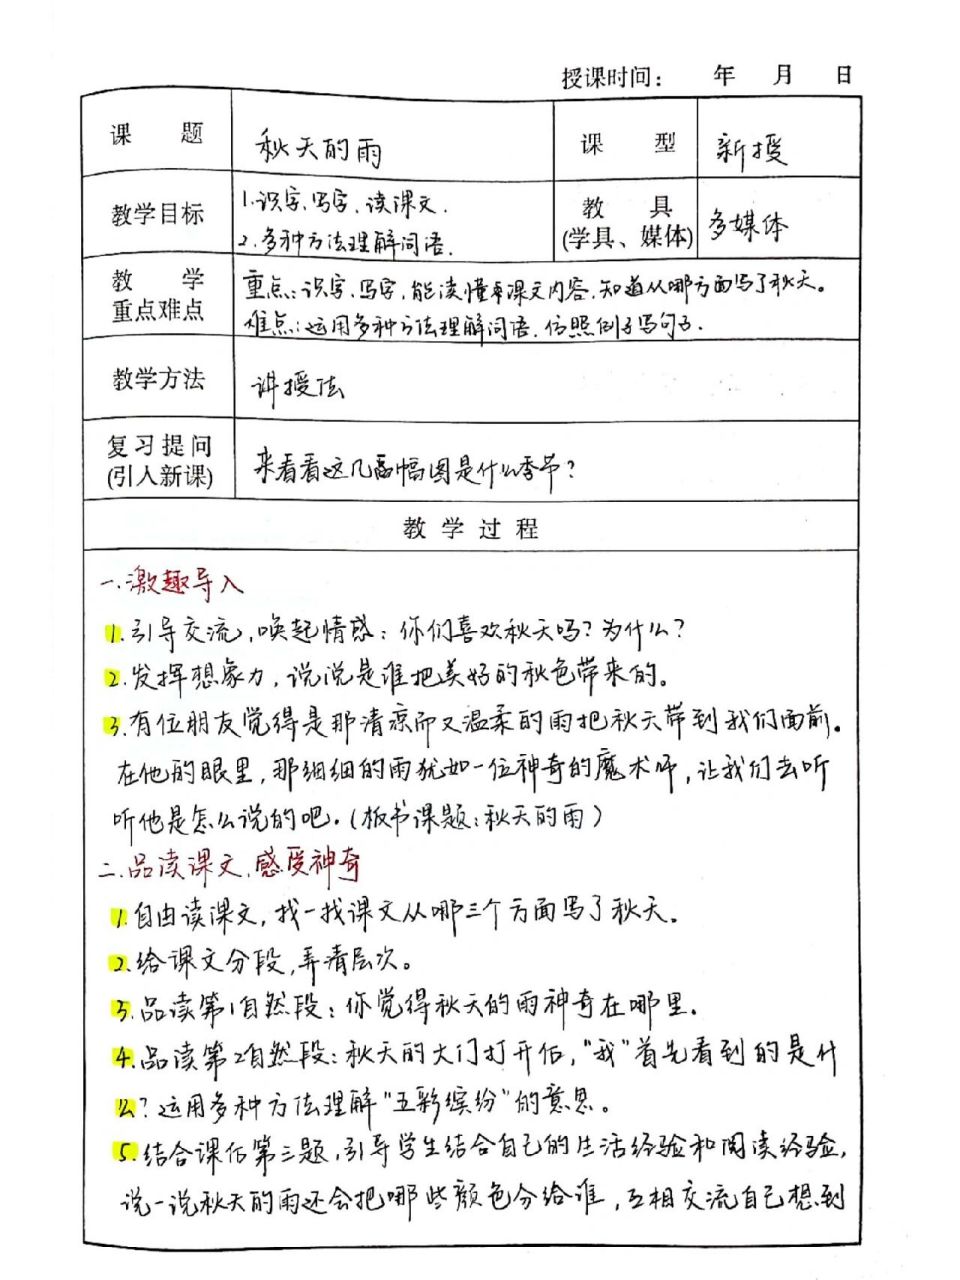 授课时间： 年 月 日
课 题 秋天的雨 课 型 新授
教学目标 1.识字、写字、读课文. 教 具 多媒体
2.多种方法理解词语. (学具、媒体)
教 学 重点：识字、写字,能读懂课文内容、知道从哪方面写了秋天。
重点难点 难点：运用多种方法理解词语、仿照例子写句子.
教学方法 讲授法
复习提问 来看看这几幅图是什么季节？
(引入新课)
教 学 过 程
一.激趣导入
1.引导交流,唤起情感：你们喜欢秋天吗？为什么？
2.发挥想象力，说说是谁把美好的秋色带来的。
3.有位朋友觉得是那清凉而又温柔的雨把秋天带到我们面前。
在他的眼里,那细细的雨犹如一位神奇的魔术师,让我们去听
听他是怎么说的吧.（板书课题:秋天的雨）
二.品读课文,感受神奇
1.自由读课文,找一找课文从哪三个方面写了秋天。
2.给课文分段,弄清层次。
3.品读第1自然段：你觉得秋天的雨神奇在哪里.
4.品读第2自然段：秋天的大门打开后,"我"首先看到的是什
么？运用多种方法理解"五彩缤纷"的意思。
5.结合课后第三题,引导学生结合自己的生活经验和阅读经验,
说一说秋天的雨还会把哪些颜色分给谁，互相交流自己想到